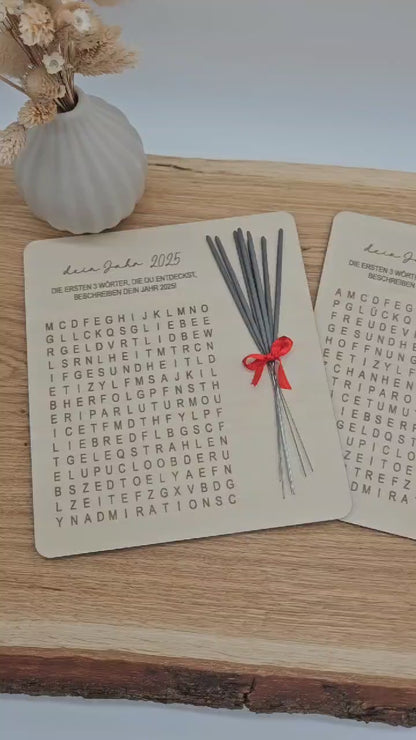 dein Jahr 2025
DIE ERSTEN 3 WÖRTER, DIE DU ENTDECKST,
BESCHREIBEN DEIN JAHR 2025!
M C D F E G H I J K L M N O
G L L C K Q S G L I E B E E
R G E L D V R T L I D B E W
L S R N L H E I T M T R C N
I F G E S U N D H E I T L D
E T I Z Y L F M S A J K I L
B H E R F O L G P F N S T H
E R I P A R L U T U R M O U
I C E T F M D T H F Y L P F
L I E B R E D F L B G S C F
T G E L E Q S T R A H L E N
E L U P U C L O O B D E R U
B S Z E D T O E L Y A E F N
L Z E I T E F Z G X V B D G
Y N A D M I R A T I O N S C
dein Ja
DIE ERSTEN 3 WÖRT
BESCHREIBE
A M C D F E G
P G L Ü C K Q
F R E U D E V
G E S U N D H
H O F F N U N G
E E T I Z Y L F
C H A N H E N
T R I P A R O
I C E T U M U
L I E B S E R F
G E L D Q S T
U P I C L O
Z E I T O E
T R E F Z
D M I R A